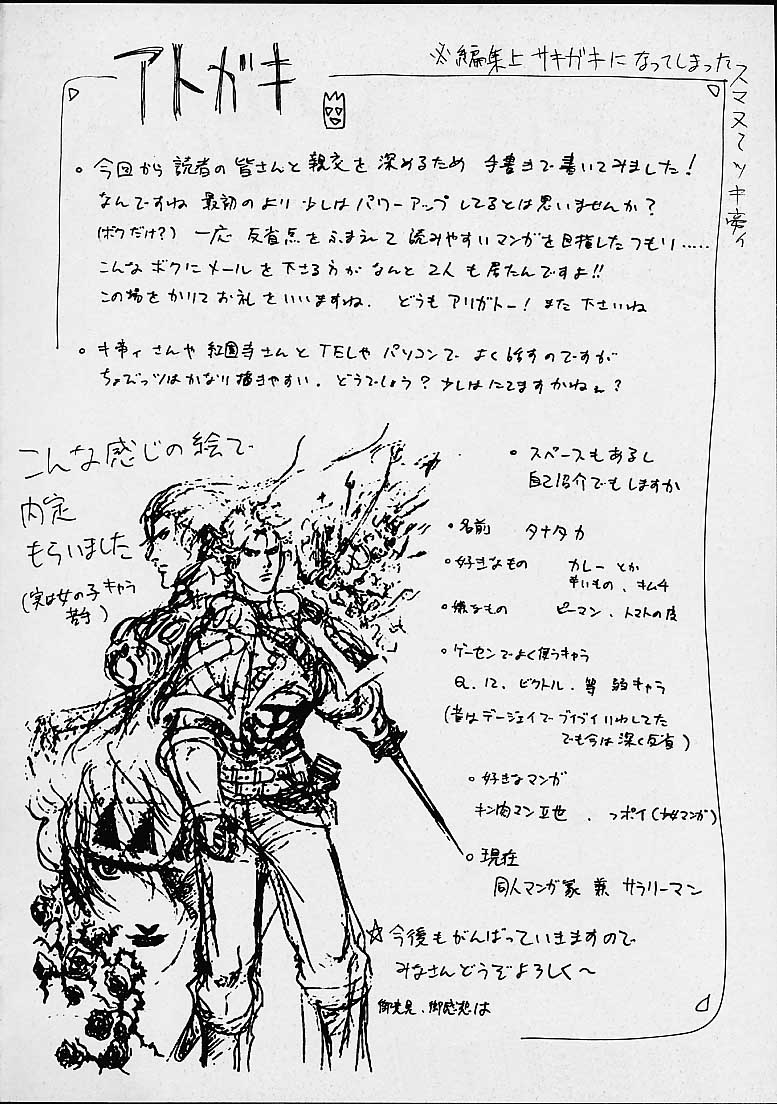 アトガキ
※編集上 サキガキになってしまった
スマヌ
。今回から読者の皆さんと親交を深めるため 手書きで書いてみました!
なんですね 最初のより少しはパワーアップしてるとは思いませんか?
(ボクだけ?) 一応 反省点をふまえて読みやすいマンガを目指したつもり.....
こんなボクにメールを下さる方がなんと2人も居たんですよ!!
この場をかりてお礼をいいますね. どうもアリガトー! また下さいね
。さんや紅国寺さんとTELやパソコンでよく話すのですが
ちょびっツはかなり描きやすい. どうでしょう? 少しはにてますかねぇ?
こんな感じの絵で
内定
もらいました
(実は女の子キャラ
苦手)
。スペースもあるし
自己紹介でもしますか
。名前 タナタカ
。好きなもの カレーとか
辛いもの、キムチ
。嫌なもの ピーマン、トマトの皮
。ゲーセンでよく使うキャラ
Q. 12. ビクトル. 等 弱キャラ
(昔はデージェイでブイブイいわしてた
でも今は深く反省)
。好きなマンガ
キン肉マンⅡ世 、っポイ(少女マンガ)
。現在
同人マンガ家 兼 サラリーマン
☆今後もがんばっていきますので
みなさんどうぞよろしく〜
御意見、御感想は